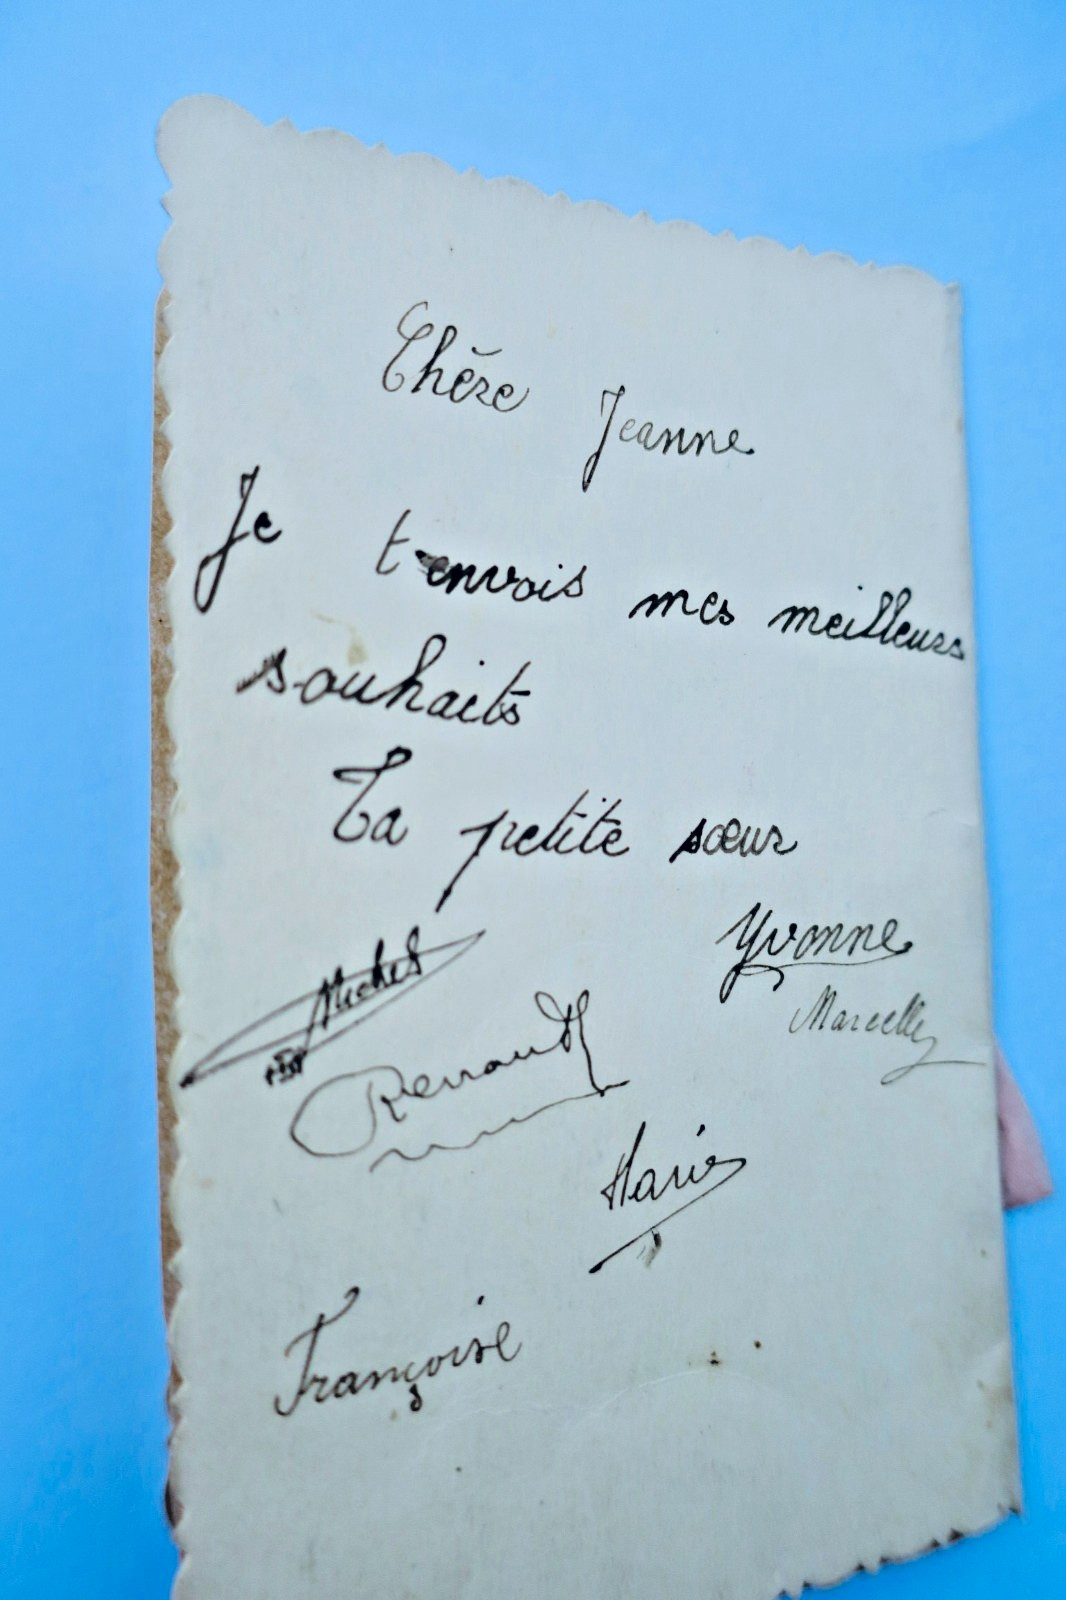 Chère Jeanne
Je t envois mes meilleurs
souhaits
Ta petite sœur
Yvonne
Michel
Marcelle
Renaud
Marie
Françoise